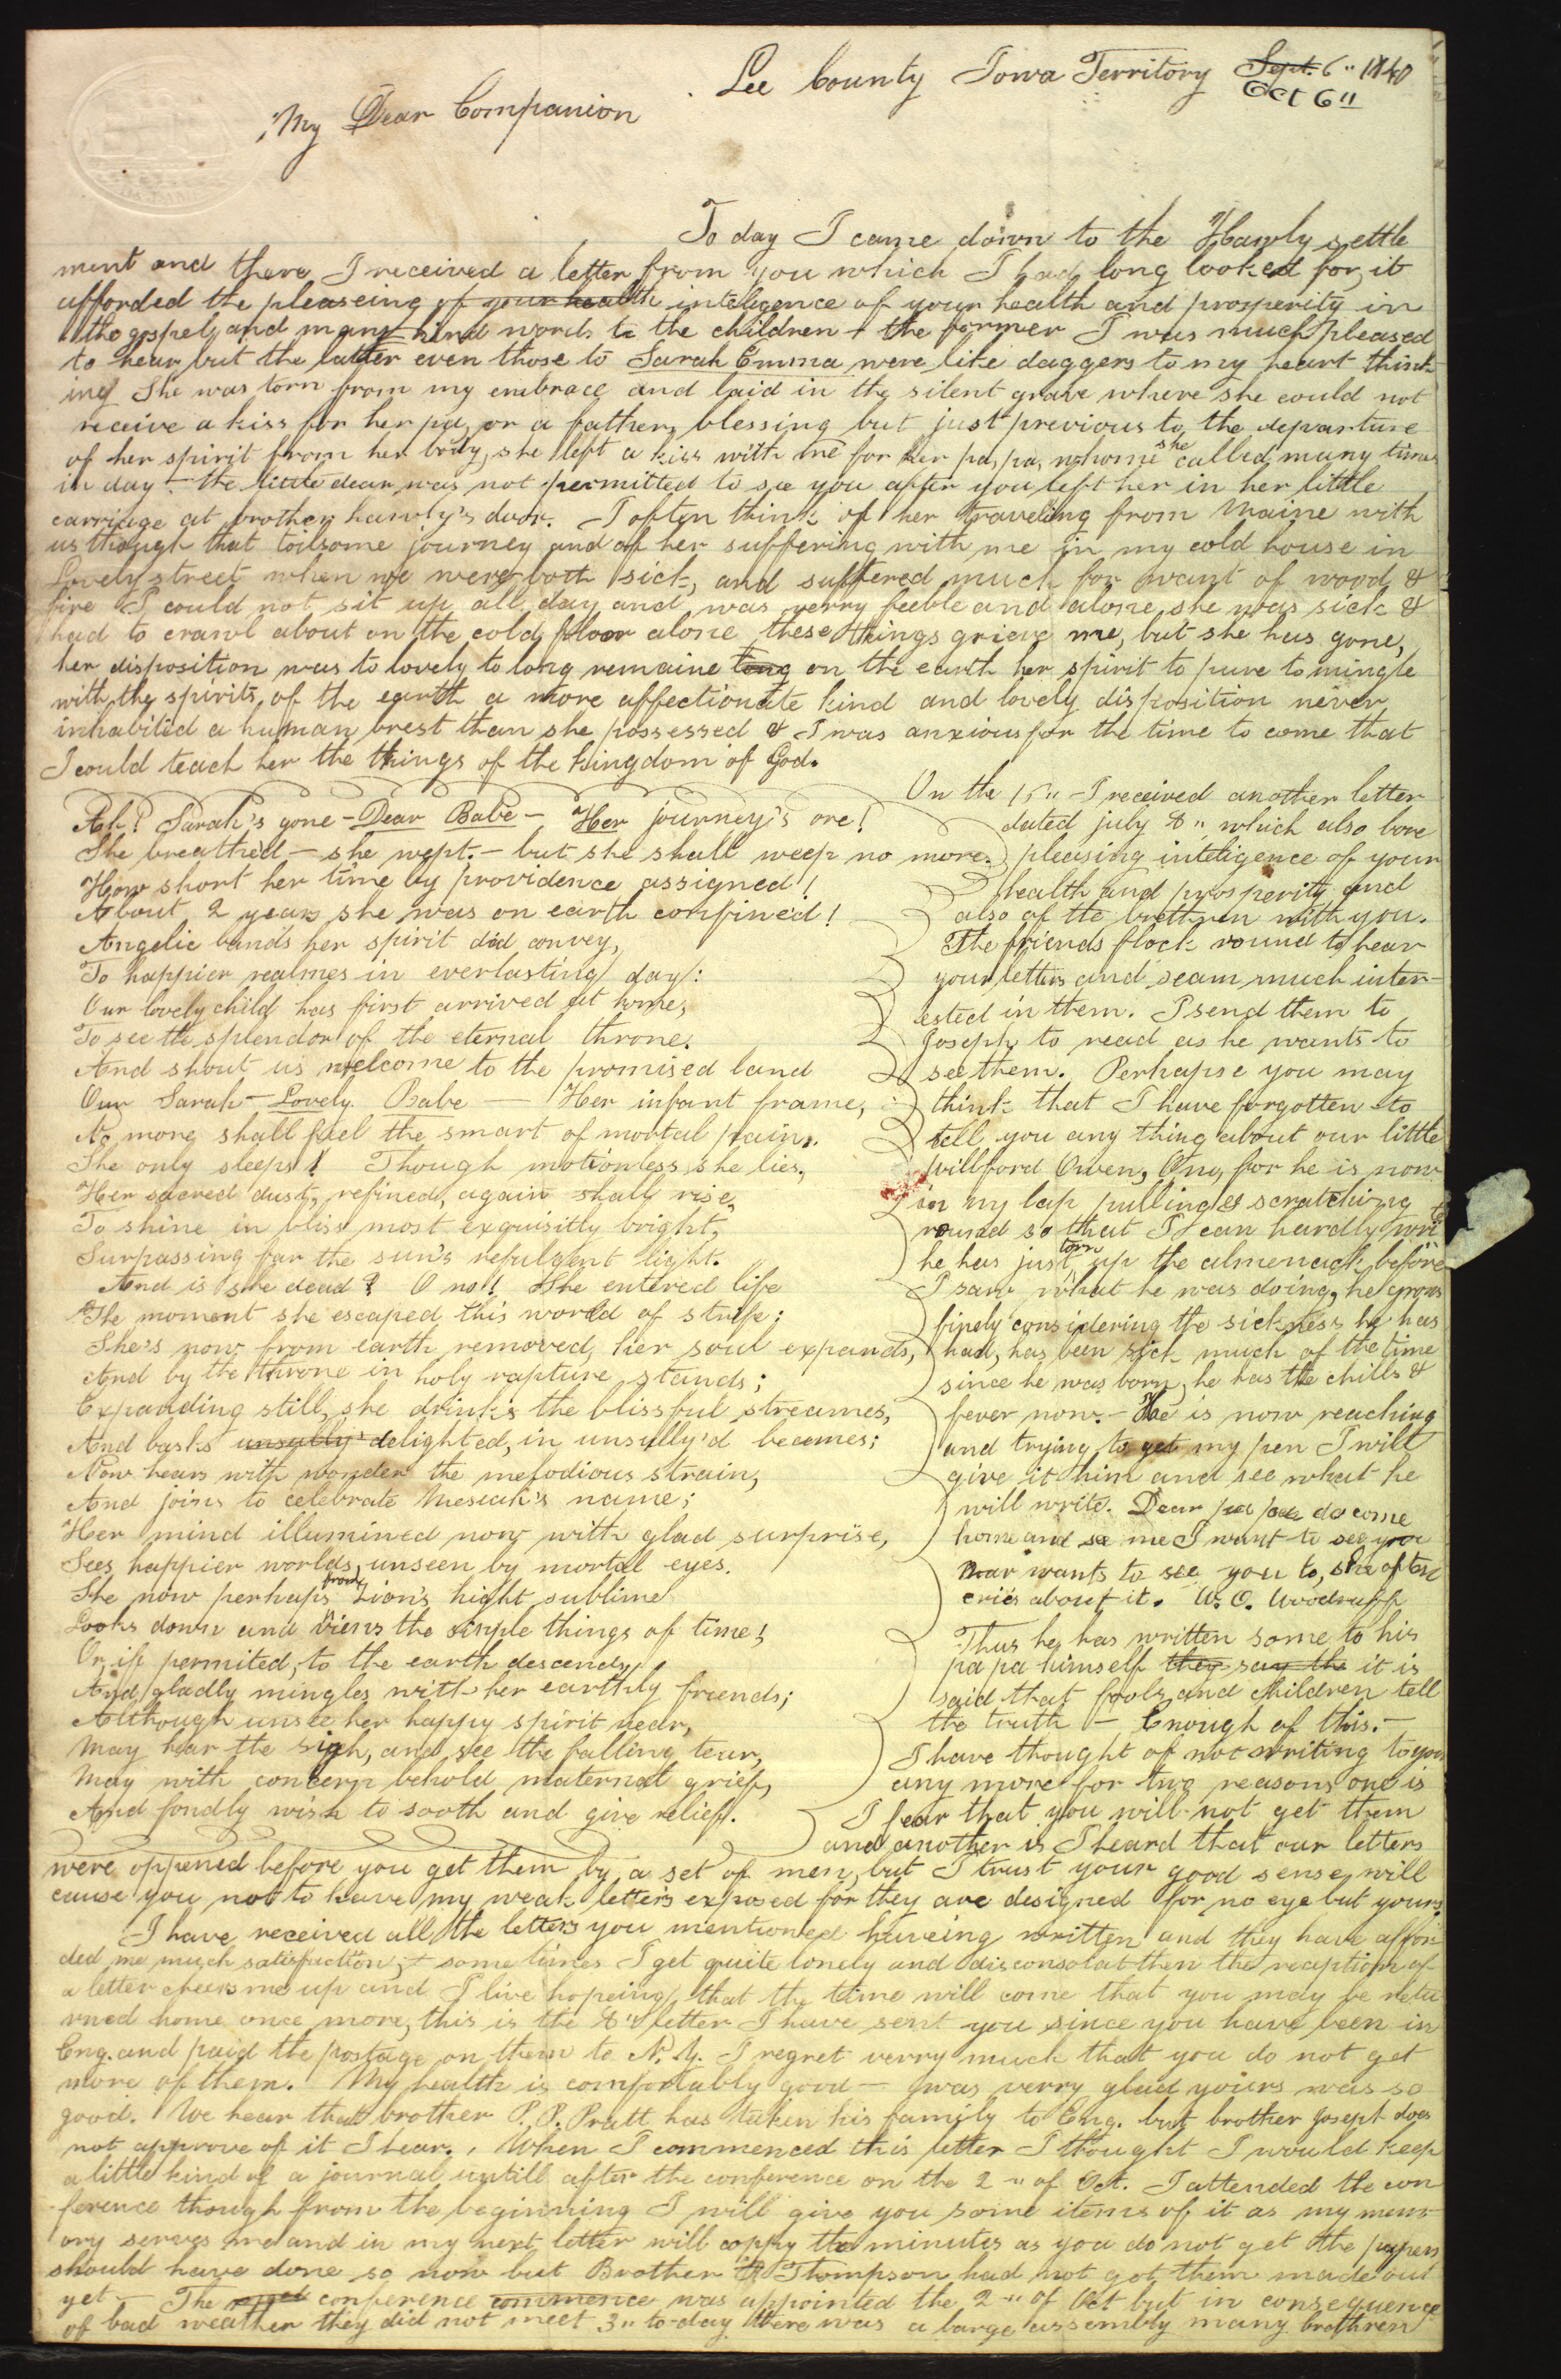 Lee County Iowa Territory Sept. 6" 1840
Oct 6"
My Dear Companion
To day I came down to the Hawly settle
ment and there I received a letter from you which I had long looked for, it
afforded the pleaseing of your health inteligence of your health and prosperity in
the gospel, and many kind words to the children + the former I was much pleased
to hear but the latter even those to Sarah Emma were like daggers to my heart think-
ing She was torn from my embrace and laid in the silent grave where she could not
receive a kiss for her pa, or a fathers blessing but just previous to the departure
of her spirit from her body, she left a kiss with me for her pa, pa, whome she called many times
in day - the little dear was not permitted to see you after you left her in her little
carriage at brother hawly's door. I often think of her traveling from Maine with
us though that toilsome journey and of her suffering with me in my cold house in
Lovely street when we were both sick, and suffered much for want of wood &
fire I could not sit up all day and was verry feeble and alone she was sick &
had to crawl about on the cold floor alone these things grieve me, but she has gone,
her disposition was to lovely to long remaine long on the earth her spirit to pure to mingle
with the spirits of the earth a more affectionate kind and lovely disposition never
inhabited a human brest than she possessed & I was anxious for the time to come that
I could teach her the things of the kingdom of God.
Ah! Sarah's gone - Dear Babe - Her journey's ore!
She breathed - she wept. - but she shall weep no more.
How short her time by providence assigned!
About 2 years she was on earth confined!
Angelic bands her spirit did convey,
To happier realmes in everlasting day:
Our lovely child has first arrived at home,
To see the splendor of the eternal throne.
And shout us welcome to the promised land
Our Sarah - Lovely Babe - Her infant frame,
No more shall feel the smart of mortal pain.
She only sleeps! Though motionless she lies,
Her sacred dust, refined, again shall rise,
To shine in bliss most exquisitly bright,
Surpassing far the sun's refulgent light.
And is she dead? O no! She entered life
The moment she escaped this world of strife:
She's now from earth removed, her soul expands,
And by the throne in holy rapture stands;
Expanding still, she drinks the blissful streames,
And basks unsully'd delighted, in unsully'd beames;
Now hears with wonder the melodious strain,
And joins to celebrate Mesiah's name;
Her mind illumined now with glad surprise,
Sees happier worlds, unseen by mortal eyes.
She now perhaps from Zion's hight sublime
Looks down and views the simple things of time!
Or, if permited, to the earth descends,
And gladly mingles with her earthly friends;
Although unsee her happy spirit near,
May hear the sigh, and see the falling tear,
May with concern behold maternal grief,
And fondly wish to sooth and give relief.
On the 15" - I received another letter
dated july 8" which also bore
pleasing inteligence of your
health and prosperity and
also of the brethren with you.
The friends flock round to hear
your letters and seam much inter-
ested in them. I send them to
Joseph to read as he wants to
see them. Perhapse you may
think that I have forgotten to
tell you any thing about our little
Willford Owen, O no, for he is now
in my lap pulling & scratching
round so that I can hardly write
he has just torn up the almenack before
I saw what he was doing, he grows
finely considering the sickness he has
had, has been sick much of the time
since he was born, he has the chills &
fever now. - He is now reaching
and trying to get my pen I will
give it him and see what he
will write. Dear pa pa do come
home and se me I want to see you
Noar wants to see you to, she often
cries about it. W. O. Woodruff
Thus he has written some to his
pa pa himself they say the it is
said that fools and children tell
the truth - Enough of this. -
I have thought of not writing to you
any more for two reasons one is
I fear that you will not get them
and another is I heard that our letters
were oppened before you get them by a set of men, but I trust your good sense will
cause you not to have my weak letters exposed for they are designed for no eye but yours.
I have received all the letters you mentioned haveing written and they have affor
ded me much satisfaction, + some times I get quite lonely and disconsolat then the reception of
a letter cheers me up and I live hopeing that the time will come that you may be retu
rned home once more, this is the 8" letter I have sent you since you have been in
Eng. and paid the postage on them to N.Y. I regret verry much that you do not get
more of them. My health is comfortably good - was verry glad yours was so
good. We hear that brother P. P. Pratt has taken his family to Eng. but brother Joseph does
not approve of it I hear. When I commenced this letter I thought I would keep
a little kind of a journal untill after the conference on the 2" of Oct. I attended the con
ference though from the beginning I will give you some items of it as my mem-
ory serves me and in my next letter will coppy the minutes as you do not get the papers
should have done so now but Brother Thompson had not got them made out
yet - The conference commence was appointed the 2" of Oct but in consequence
of bad weather they did not meet 3" to-day there was a large assembly many brethren